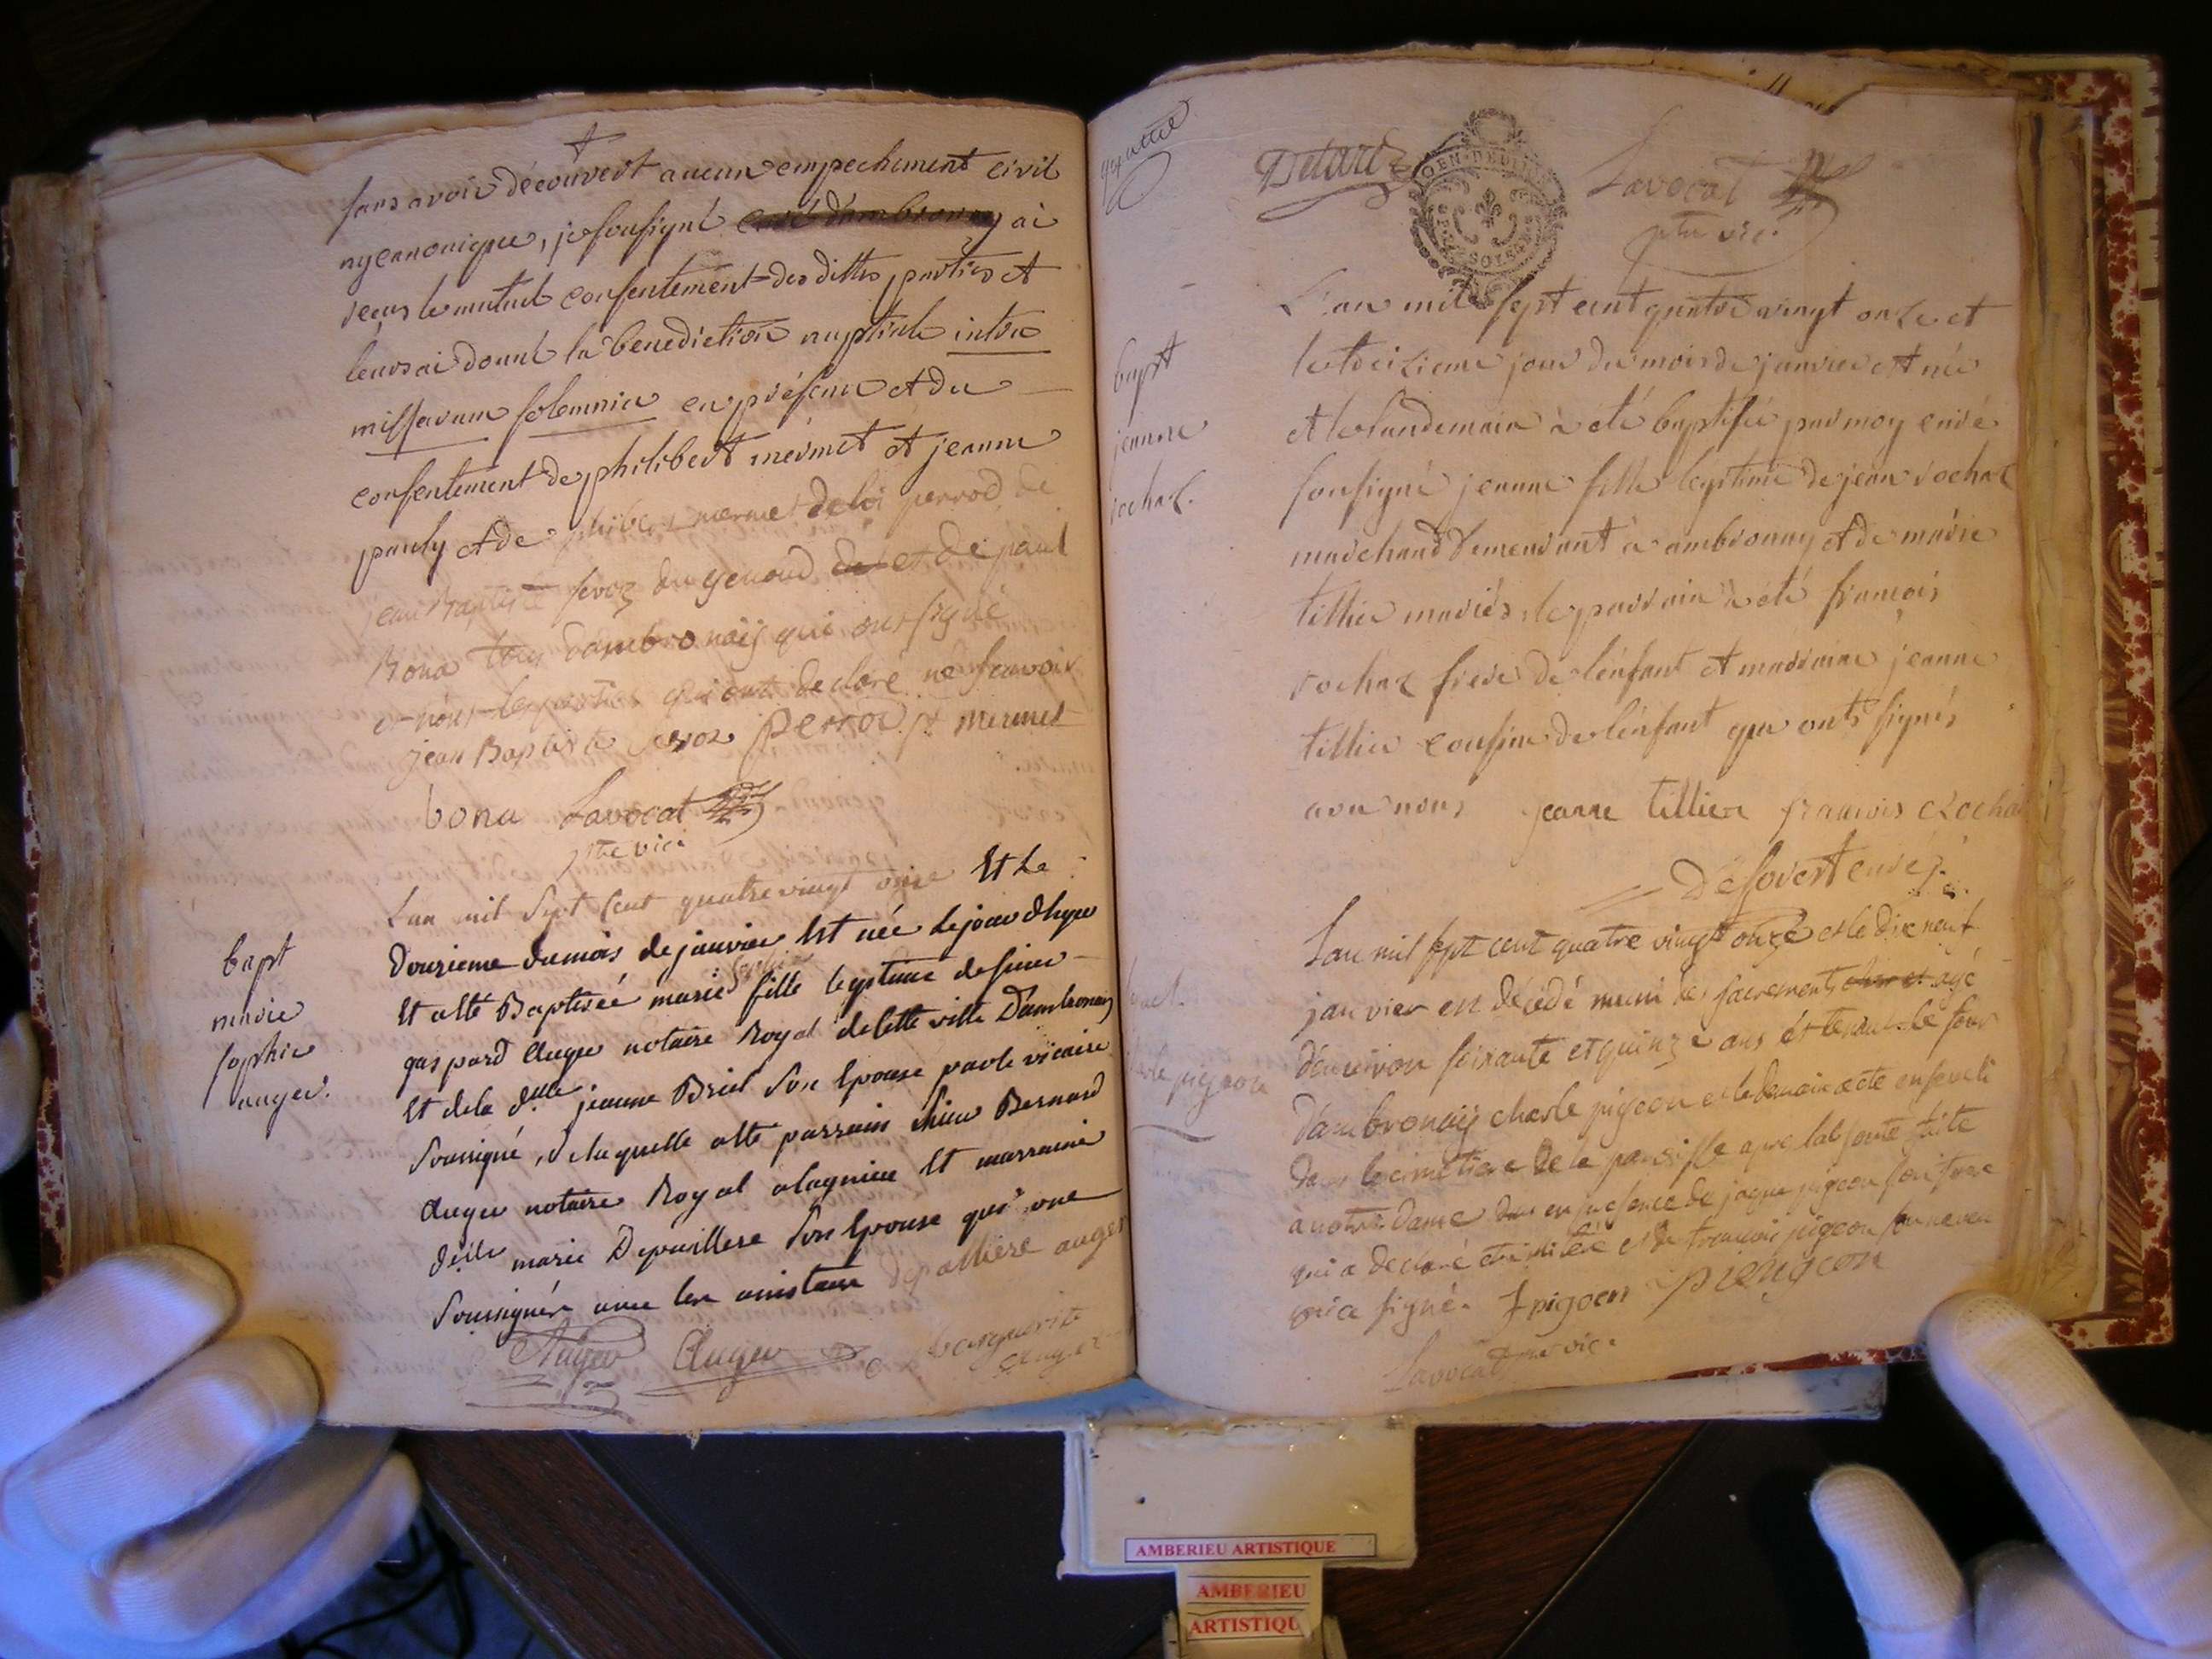 sans avoir découvert aucun empechement civil
ny cannonique, je sousigné curé d'ambronay ai
recus le mutuel consentement des dittes parties et
leurs ai donné la benediction nuptiale intra
missarum solemnia en présence et du
consentement de philibert mermet et jeanne
pauly et de philibert mermet de loi perrod de
jean Baptiste sevoz du genoud et de paul
Bona tous d'ambronay qui ont signé
et non les parties qui ont declaré ne scavoir
jean Baptiste sevoz perrod p mermet
bona Lavocat
ptre vic.
bapt
marie
sophie
auger.
L'an mil sept cent quatre vingt onze Et Le
douzieme du mois de janvier Est née le jour d'hyer
Et a été Baptisée marie sophie fille legitime de sieur
gaspard Auger notaire Royal de cette ville D'ambronay
Et de la dlle jeanne Briel son Epouse par le vicaire
soussigné, de laquelle a été parrain sieur Bernard
Auger notaire Royal a lagnieu Et marraine
delle marie Depaillere son Epouse qui ont
soussignés avec les assistans depalliere auger
Auger Auger marguerite
auger
quattre
Detard
Lavocat
ptre vic.
L'an mil sept cent quatre vingt onze et
le treizieme jour du mois de janvier est née
et le landemain a été baptisée par moy curé
sousigné jeanne fille legitime de jean rochaz
marchand demeurant a ambronay et de marie
tillier mariés, le parrain a été françois
rochaz frere de l'enfant et marraine jeanne
tillier cousine de l'enfant qui onts signés
avec nous jeanne tillier françois Rochaz
Desovert curé
bapt
jeanne
rochaz.
L'an mil sept cent quatre vingt onze et le dix neuf
janvier est décédé muni des sacrements agé
d'environ soixante et quinze ans et tenant le four
d'ambronay charle pigeon et le lendemain a été enseveli
dans le cimetiere de la paroisse apres l'absoute faite
a notre dame en presence de jaque pigeon son frere
qui a declaré etre illiteré et de françois pigeon son neveu
qui a signé. f pigoen piengeon
Lavocat ptre vic.
charle pigeon
AMBERIEU ARTISTIQUE
AMBERIEU
ARTISTIQU